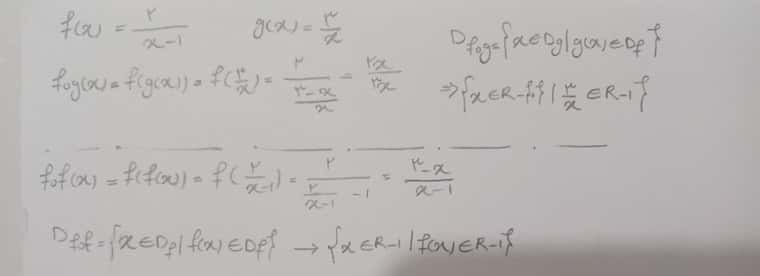 f(x) = ۲/(x-1)    g(x) = ۳/x    D_fog = {x ∈ Dg | g(x) ∈ Df}
fog(x) = f(g(x)) = f(۳/x) = ۲/((۳-x)/x) = ۲x/۳-x    ⇒ {x ∈ R-{۰} | ۳/x ∈ R-1}
fof(x) = f(f(x)) = f(۲/(x-1)) = ۲/(۲/(x-1) -1) = (۳-x)/(x-1)
D_fof = {x ∈ Df | f(x) ∈ Df} → {x ∈ R-1 | f(x) ∈ R-1}